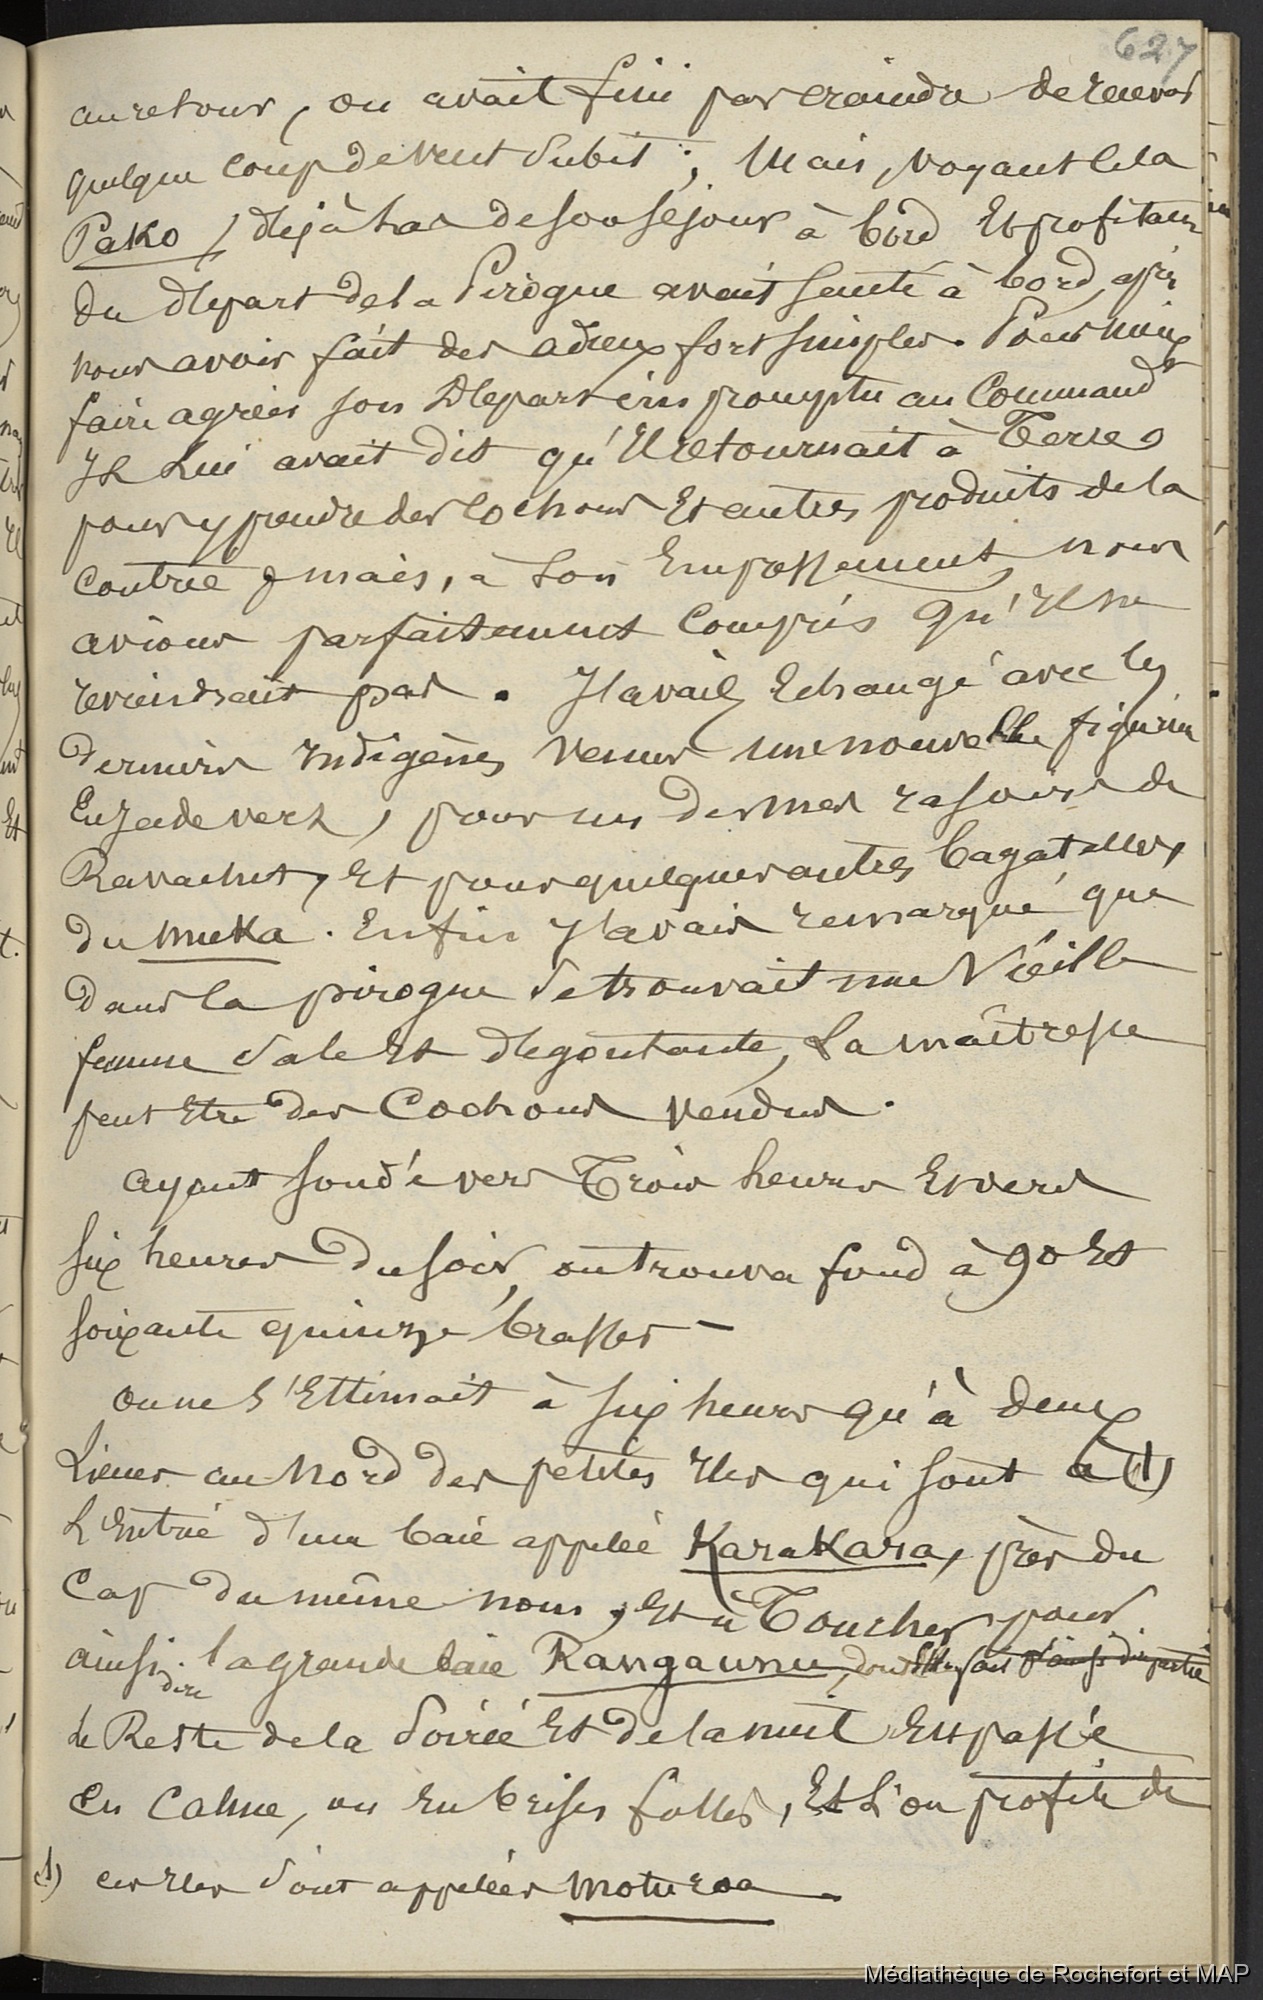 627
au retour, on avait fini par craindre de recevoir
quelque coup de vent subit ; Mais, voyant cela
Pako, déjà las de son séjour à bord Et profitant
du départ de la Pirogue avait sauté à bord, après
nous avoir fait des adieux fort simples. Pour mieux
faire agréer son Départ impromptu au Command.t
Il Lui avait dit qu'Il retournait à Terre
pour y prendre des Cochons Et autres produits de la
Contrée ; mais, à son Empressement, nous
avions parfaitement Compris qu'Il ne
reviendrait pas. Il avait Echangé avec les
derniers Indigènes venus une nouvelle figurine
En Jade vert, pour un de mes rasoirs de
Ravachet, Et pour quelques autres bagatelles,
du Meka. Enfin Il avait remarqué que
dans la pirogue se trouvait une Vieille
femme sale Et dégoutante, La maîtresse
peut Etre des Cochons vendus.
ayant sondé vers Trois heures Et vers
six heures du soir, on trouva fond à 90 Et
soixante quinze brasses —
on ne s'Estimait à six heures qu'à deux
Lieues au Nord des petites Iles qui sont à (1)
L'Entrée d'une baie appelée KaraKara, près du
Cap du même nom, Et à Toucher pour
ainsi dire la grande baie Rangaunu,
Le Reste de la Soirée Et de la nuit Est passé
En Calme, ou En brises folles, Et L'on profite de
(1) ces Iles sont appelées Moturoa.
Médiathèque de Rochefort et MAP